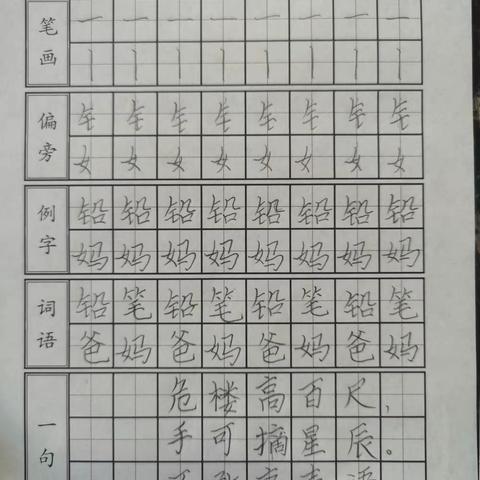 笔画
一 一 一 一 一 一 一 一
丨 丨 丨 丨 丨 丨 丨 丨
偏旁
钅 钅 钅 钅 钅 钅 钅 钅
女 女 女 女 女 女 女 女
例字
铅 铅 铅 铅 铅 铅 铅 铅
妈 妈 妈 妈 妈 妈 妈 妈
词语
铅 笔 铅 笔 铅 笔 铅 笔
爸 妈 爸 妈 爸 妈 爸 妈
一句
危楼高百尺,
手可摘星辰。